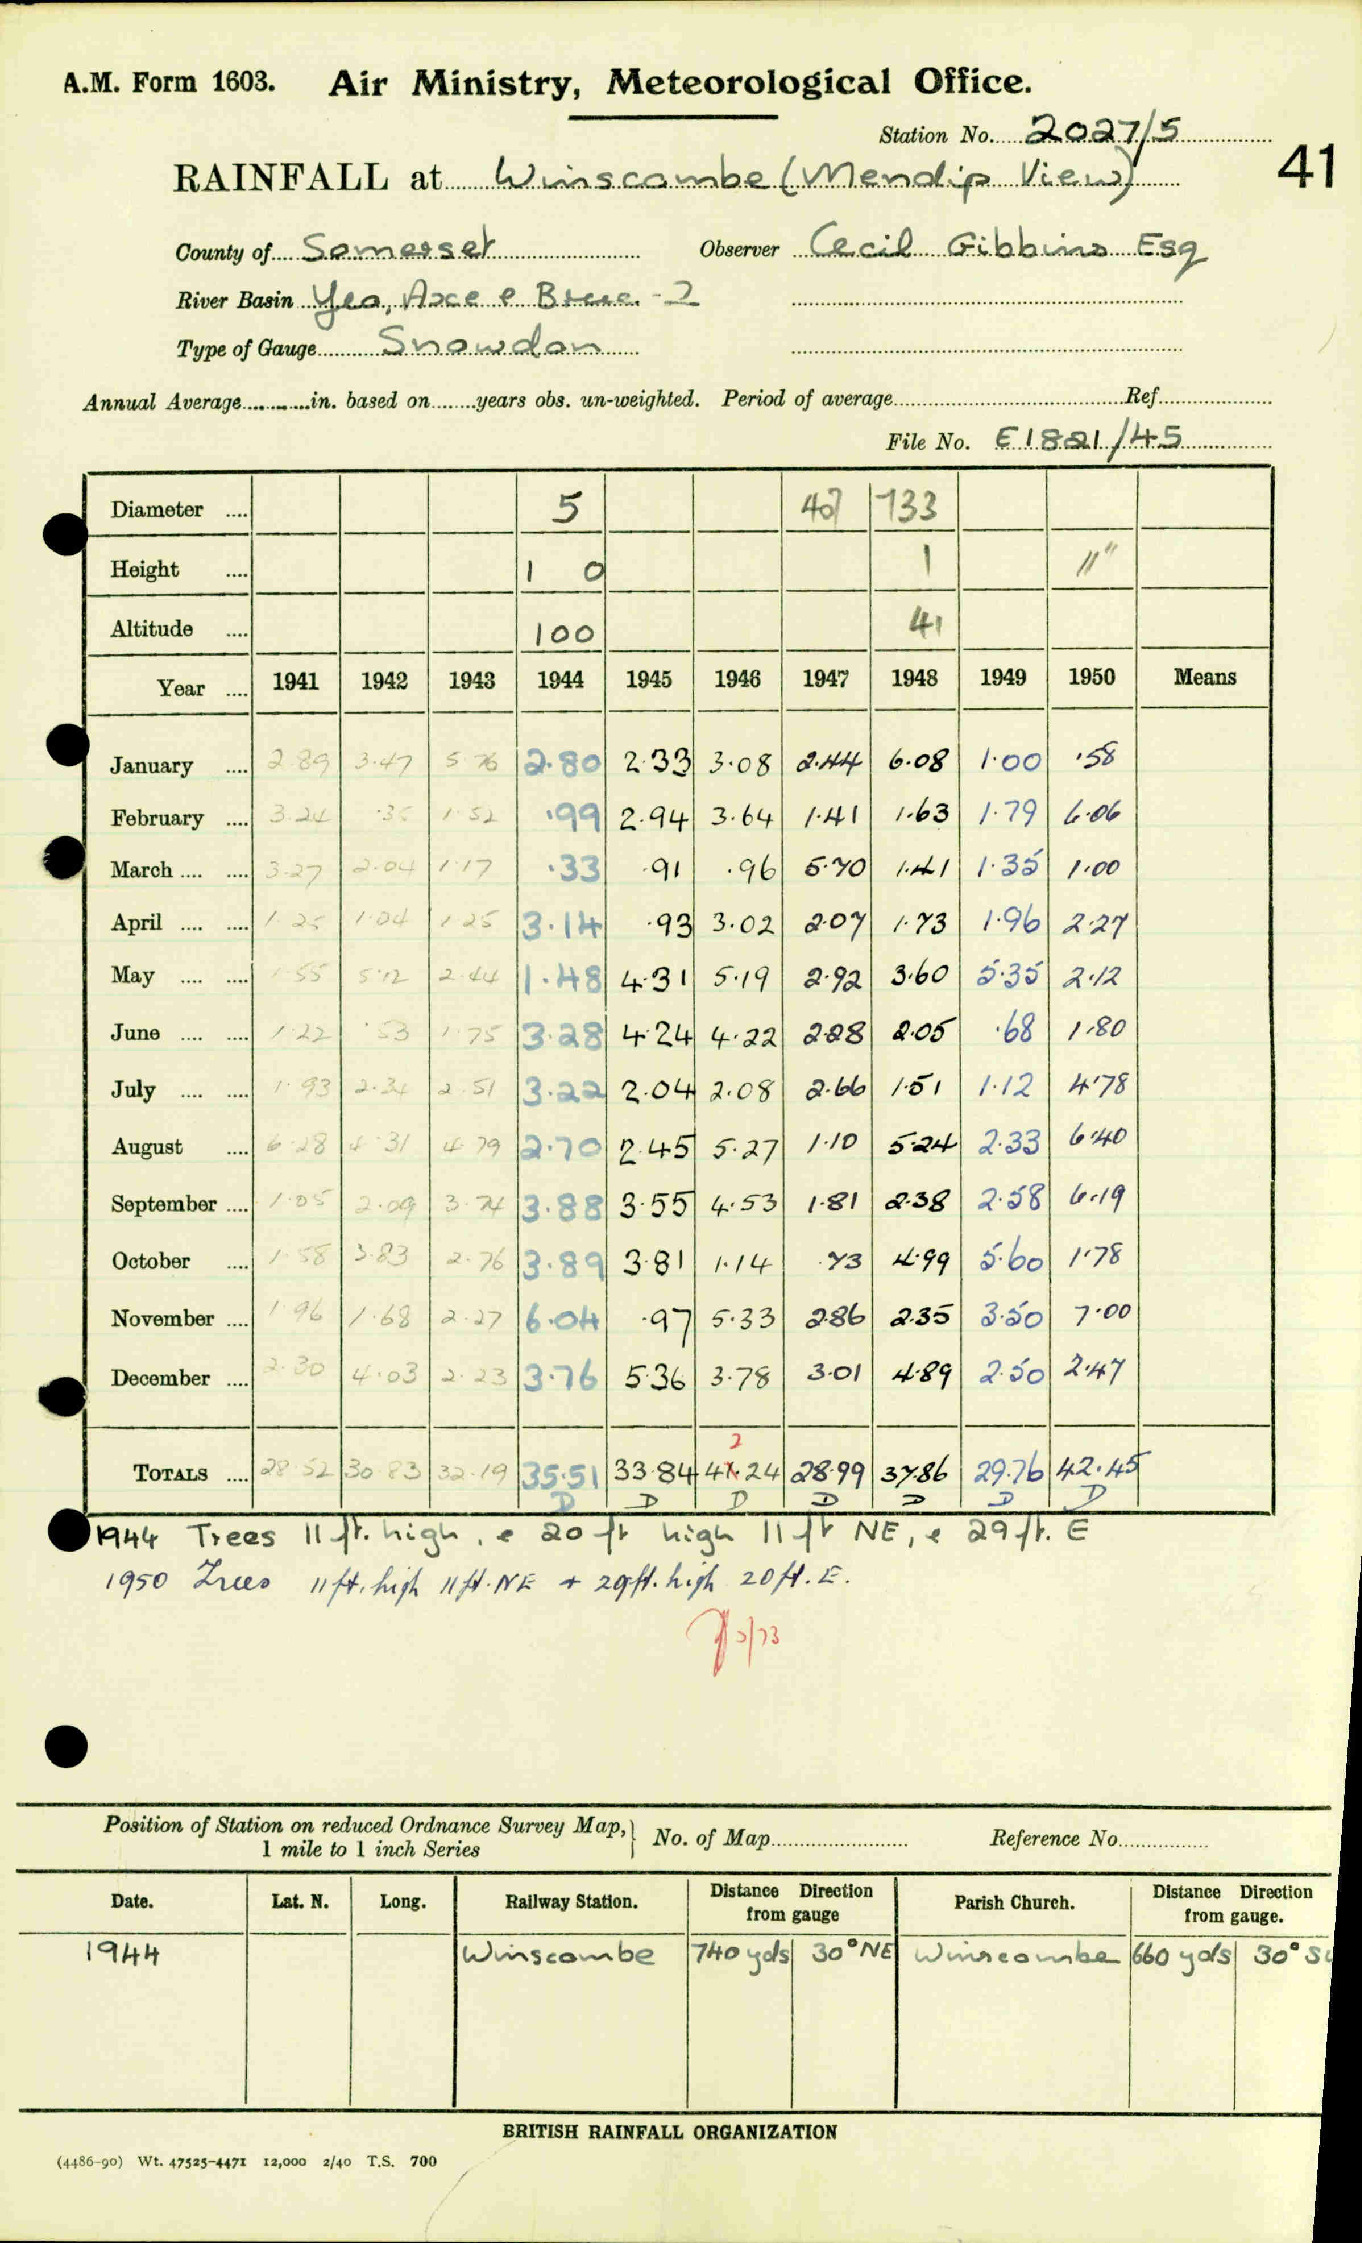 A.M. Form 1603. Air Ministry, Meteorological Office.
Station No. 2027/5
41
RAINFALL at Winscombe (Mendip View)
County of Somerset Observer Cecil Gibbins Esq
River Basin Yeo, Axe & Brue. - 2
Type of Gauge Snowdon
Annual Average in. based on years obs. un-weighted. Period of average Ref
File No. E1821/45
Diameter 5 42 733
Height 1 0 1 11"
Altitude 100 41
Year 1941 1942 1943 1944 1945 1946 1947 1948 1949 1950 Means
January 2.89 3.47 5.76 2.80 2.33 3.08 2.44 6.08 1.00 .58
February 3.24 .35 1.52 .99 2.94 3.64 1.41 1.63 1.79 6.06
March 3.27 2.04 1.17 .33 .91 .96 5.70 1.41 1.35 1.00
April 1.25 1.04 1.25 3.14 .93 3.02 2.07 1.73 1.96 2.27
May 1.55 5.12 2.44 1.48 4.31 5.19 2.92 3.60 5.35 2.12
June 1.22 .53 1.75 3.28 4.24 4.22 2.28 2.05 .68 1.80
July 1.93 2.34 2.51 3.22 2.04 2.08 2.66 1.51 1.12 4.78
August 6.28 4.31 4.79 2.70 2.45 5.27 1.10 5.24 2.33 6.40
September 1.05 2.09 3.74 3.88 3.55 4.53 1.81 2.38 2.58 6.19
October 1.58 3.83 2.76 3.89 3.81 1.14 .73 4.99 5.60 1.78
November 1.96 1.68 2.27 6.04 .97 5.33 2.86 2.35 3.50 7.00
December 2.30 4.03 2.23 3.76 5.36 3.78 3.01 4.89 2.50 2.47
2
TOTALS 28.52 30.83 32.19 35.51 33.84 41.24 28.99 37.86 29.76 42.45
D D D D D D D
1944 Trees 11 ft. high, & 20 ft high 11 ft NE, & 29 ft. E
1950 Trees 11 ft. high 11 ft. NE + 29 ft. high 20 ft. E.
3/73
Position of Station on reduced Ordnance Survey Map, 1 mile to 1 inch Series No. of Map Reference No.
Date. Lat. N. Long. Railway Station. Distance Direction from gauge Parish Church. Distance Direction from gauge.
1944 Winscombe 740 yds 30° NE Winscombe 660 yds 30°
BRITISH RAINFALL ORGANIZATION
(4486-90) Wt. 47525-4471 12,000 2/40 T.S. 700